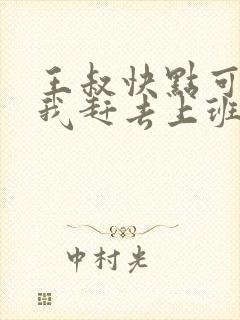 王叔快點可
我赶去上班
中村光